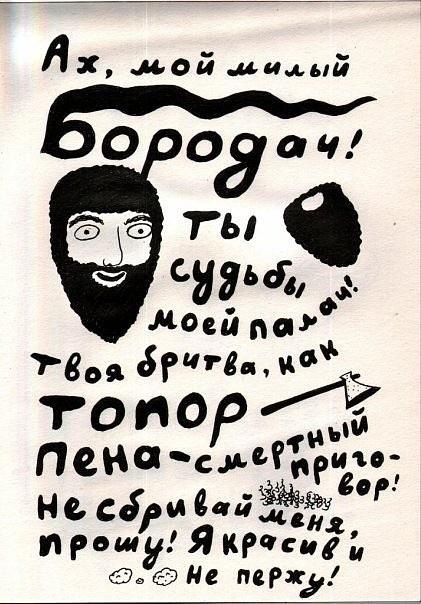 Ах, мой милый
Бородач!
ты
судьбы
моей палач!
твоя бритва, как
топор
пена-смертный
приго-
вор!
не сбривай меня,
прошу! Я красив и
не пержу!